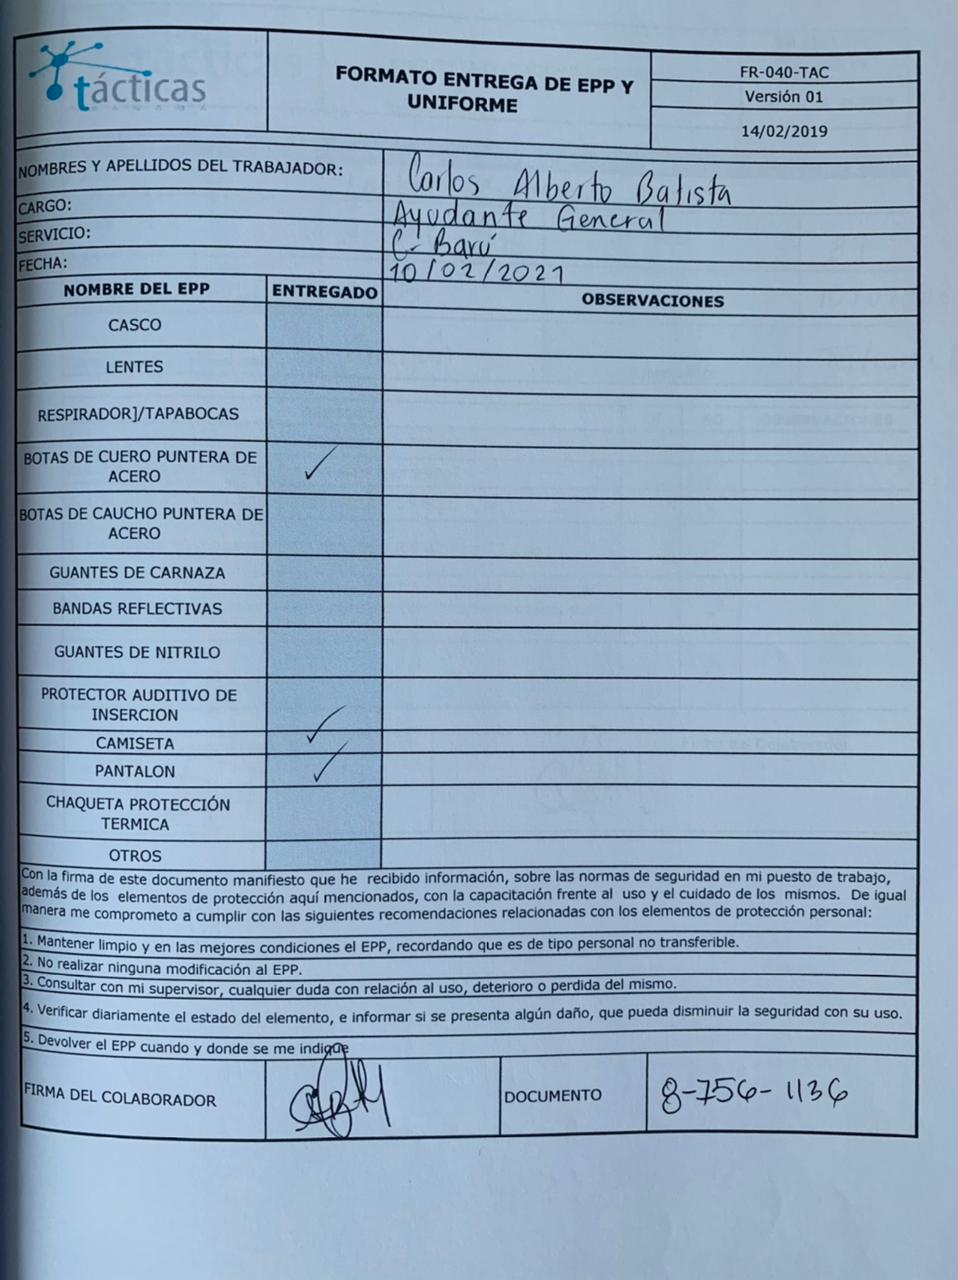 tácticas
PANAMÁ
FORMATO ENTREGA DE EPP Y
UNIFORME
FR-040-TAC
Versión 01
14/02/2019
NOMBRES Y APELLIDOS DEL TRABAJADOR: Carlos Alberto Batista
CARGO: Ayudante General
SERVICIO: C- Barú
FECHA: 10/02/2021
NOMBRE DEL EPP ENTREGADO OBSERVACIONES
CASCO
LENTES
RESPIRADOR]/TAPABOCAS
BOTAS DE CUERO PUNTERA DE
ACERO ✓
BOTAS DE CAUCHO PUNTERA DE
ACERO
GUANTES DE CARNAZA
BANDAS REFLECTIVAS
GUANTES DE NITRILO
PROTECTOR AUDITIVO DE
INSERCION
CAMISETA ✓
PANTALON ✓
CHAQUETA PROTECCIÓN
TERMICA
OTROS
Con la firma de este documento manifiesto que he recibido información, sobre las normas de seguridad en mi puesto de trabajo,
además de los elementos de protección aquí mencionados, con la capacitación frente al uso y el cuidado de los mismos. De igual
manera me comprometo a cumplir con las siguientes recomendaciones relacionadas con los elementos de protección personal:
1. Mantener limpio y en las mejores condiciones el EPP, recordando que es de tipo personal no transferible.
2. No realizar ninguna modificación al EPP.
3. Consultar con mi supervisor, cualquier duda con relación al uso, deterioro o perdida del mismo.
4. Verificar diariamente el estado del elemento, e informar si se presenta algún daño, que pueda disminuir la seguridad con su uso.
5. Devolver el EPP cuando y donde se me indique
FIRMA DEL COLABORADOR DOCUMENTO 8-756-1136